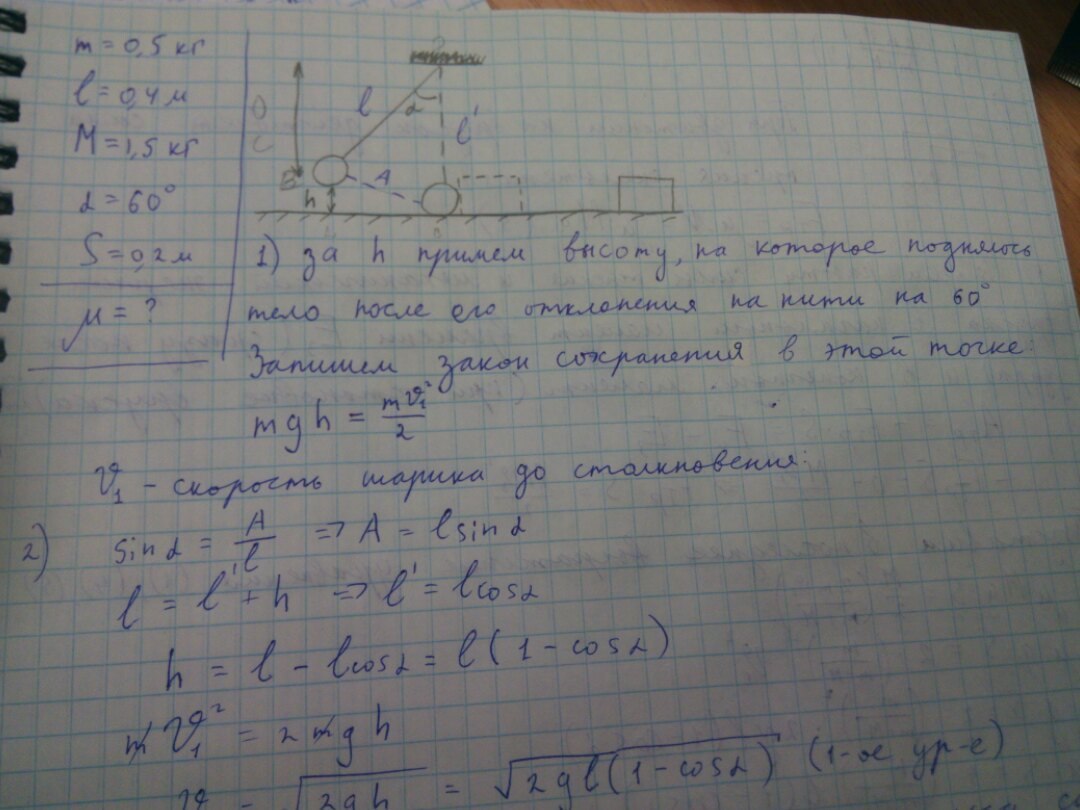 m = 0,5 кг
l = 0,4 м
M = 1,5 кг
α = 60°
S = 0,2 м
μ = ?
l
α
l'
A
B
h
1) за h примем высоту, на которое поднялось
тело после его отклонения на нити на 60°
Запишем закон сохранения в этой точке:
mgh = mϑ₁²/2
ϑ₁ - скорость шарика до столкновения:
2) sinα = A/l => A = l sinα
l = l' + h => l' = l cosα
h = l - l cosα = l(1 - cosα)
mϑ₁² = 2mgh
ϑ = √2gh = √2gl(1-cosα) (1-ое ур-е)